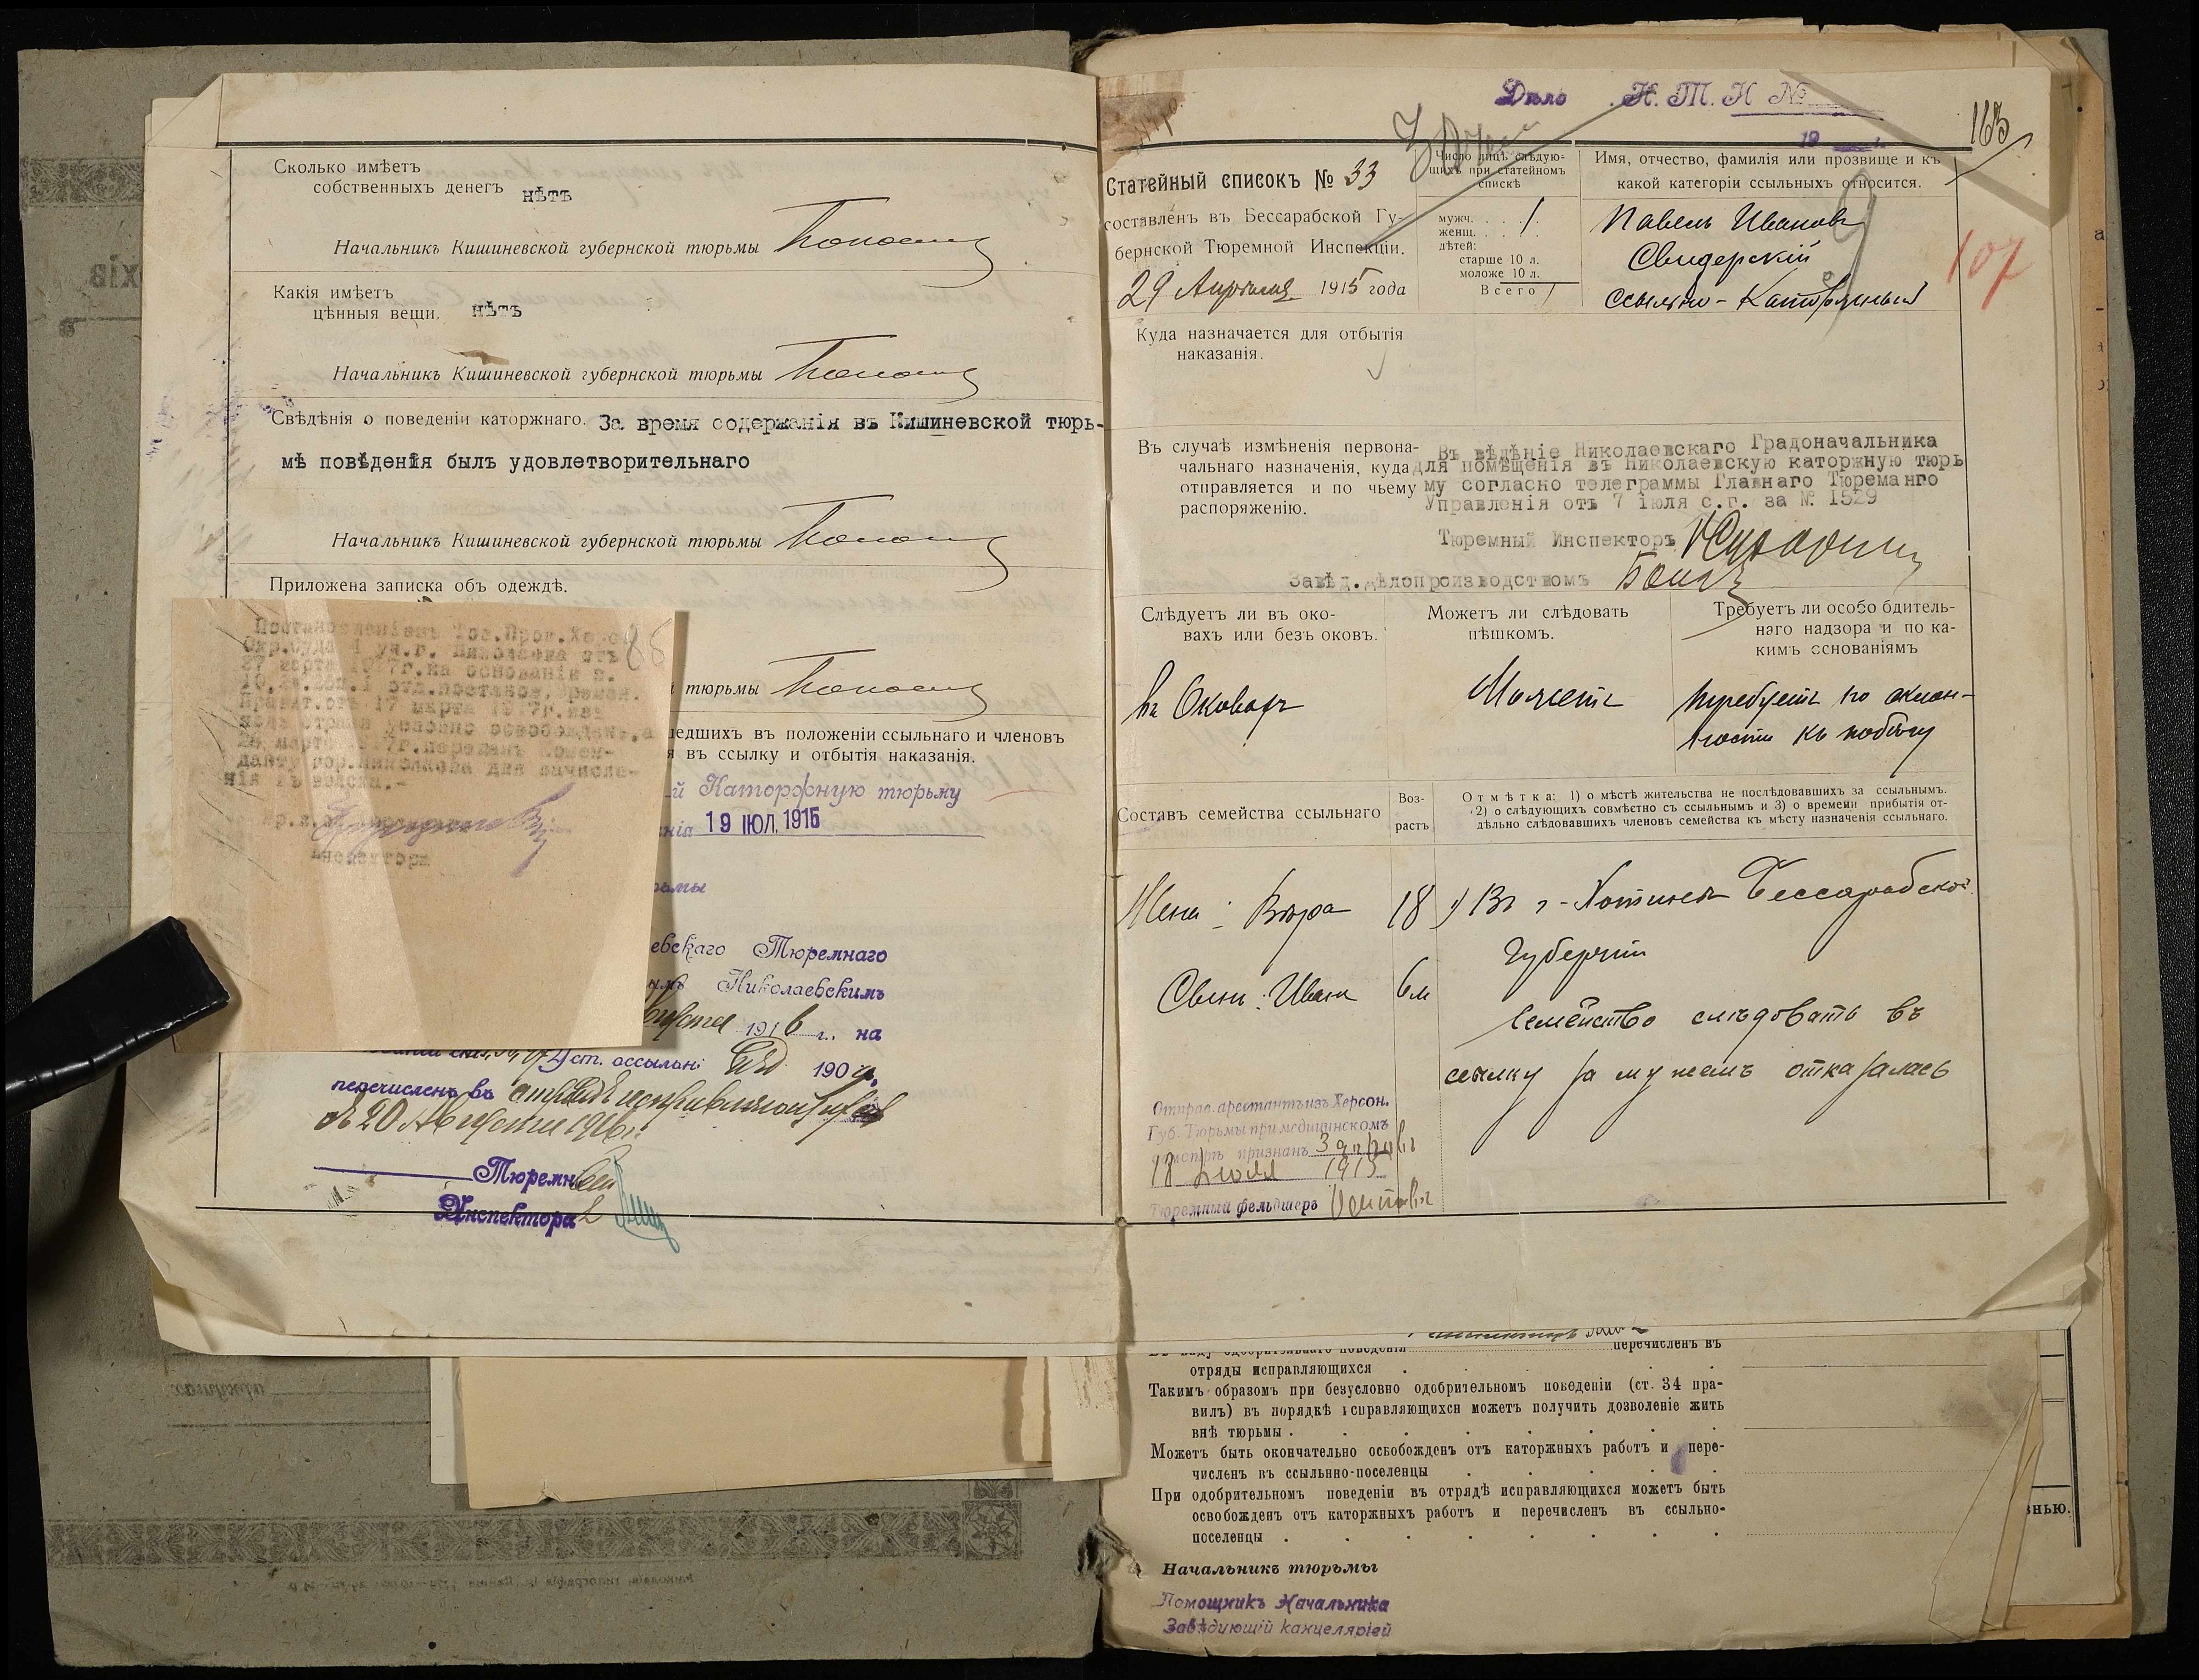 Сколько имѣетъ
собственныхъ денегъ нѣтъ
Начальникъ Кишиневской губернской тюрьмы
Какія имѣетъ
цѣнныя вещи. нѣтъ
Начальникъ Кишиневской губернской тюрьмы
Свѣдѣнія о поведеніи каторжнаго. За время содержанія въ Кишиневской тюрь-
мѣ поведѣнія былъ удовлетворительнаго
Начальникъ Кишиневской губернской тюрьмы
Приложена записка объ одеждѣ.
88
Постановленіемъ Тов.Прок.Херс
Окр.Суда 1 уч.г. Николаева отъ
27 марта 1917г.на основаніи п.
отд.постанов.Времен.
Правит.отъ 17 марта 1917г.изъ
подъ стражи условно освобожденъ,а
28 марта 1917г.переданъ Комен-
данту гор.Николаева для зачисле-
нія въ войска.-
Инспектора
тюрьмы
едшихъ въ положеніи ссыльнаго и членовъ
я въ ссылку и отбытія наказанія.
й Каторжную тюрьму
нія 19 ІЮЛ.1915
рьмы
евскаго Тюремнаго
ымъ Николаевскимъ
густа 1916 г. на
Уст. о ссыльн. изд. 1909 г.
перечисленъ въ отрядъ исправляющихся
съ 20 Августа 1916 г.
Тюремн
Инспектора
Дѣло Н. Т. И №
19 г.
163
Статейный списокъ № 33
составленъ въ Бессарабской Гу-
бернской Тюремной Инспекціи.
29 Апрѣля 1915 года
Число лицъ слѣдую-
щихъ при статейномъ
спискѣ
мужч. . . . 1.
женщ. . . .
дѣтей:
старше 10 л.
моложе 10 л.
Всего 1
Имя, отчество, фамилія или прозвище и къ
какой категоріи ссыльныхъ относится.
Павелъ Ивановъ
Свидерскій
ссыльно-каторжный
107
Куда назначается для отбытія
наказанія.
Въ случаѣ измѣненія первона-
чальнаго назначенія, куда
отправляется и по чьему
распоряженію.
Въ вѣдѣніе Николаевскаго Градоначальника
для помѣщенія въ Николаевскую каторжную тюрь
му согласно телеграммы Главнаго Тюреманго
Управленія отъ 7 іюля с.г. за № 1529
Тюремный Инспекторъ
Завѣд.дѣлопроизводствомъ
Слѣдуетъ ли въ око-
вахъ или безъ оковъ.
въ Оковахъ
Можетъ ли слѣдовать
пѣшкомъ.
Можетъ
Требуетъ ли особо бдитель-
наго надзора и по ка-
кимъ основаніямъ
требуетъ по склон-
ности къ побѣгу
Составъ семейства ссыльнаго
Воз-
растъ
Отмѣтка: 1) о мѣстѣ жительства не послѣдовавшихъ за ссыльнымъ.
2) о слѣдующихъ совмѣстно съ ссыльнымъ и 3) о времени прибытія от-
дѣльно слѣдовавшихъ членовъ семейства къ мѣсту назначенія ссыльнаго.
Жена: Вѣра 18 1) Въ г. Хотинѣ Бессарабской
Губерніи
Сынъ: Иванъ 6 м
Семейство слѣдовать въ
ссылку за мужемъ отказалась
Отправ. арестантъ изъ Херсон.
Губ. Тюрьмы при медицинскомъ
осмотрѣ признанъ здоровъ
18 Іюля 1915
Тюремный фельдшеръ
перечисленъ въ
отряды исправляющихся .
Такимъ образомъ при безусловно одобрительномъ поведеніи (ст. 34 пра-
вилъ) въ порядкѣ исправляющихся можетъ получить дозволеніе жить
внѣ тюрьмы .
Можетъ быть окончательно освобожденъ отъ каторжныхъ работъ и пере-
численъ въ ссыльно-поселенцы
При одобрительномъ поведеніи въ отрядѣ исправляющихся можетъ быть
освобожденъ отъ каторжныхъ работъ и перечисленъ въ ссыльно-
поселенцы .
знью.
Начальникъ тюрьмы
Помощникъ Начальника
Завѣдующій канцеляріей